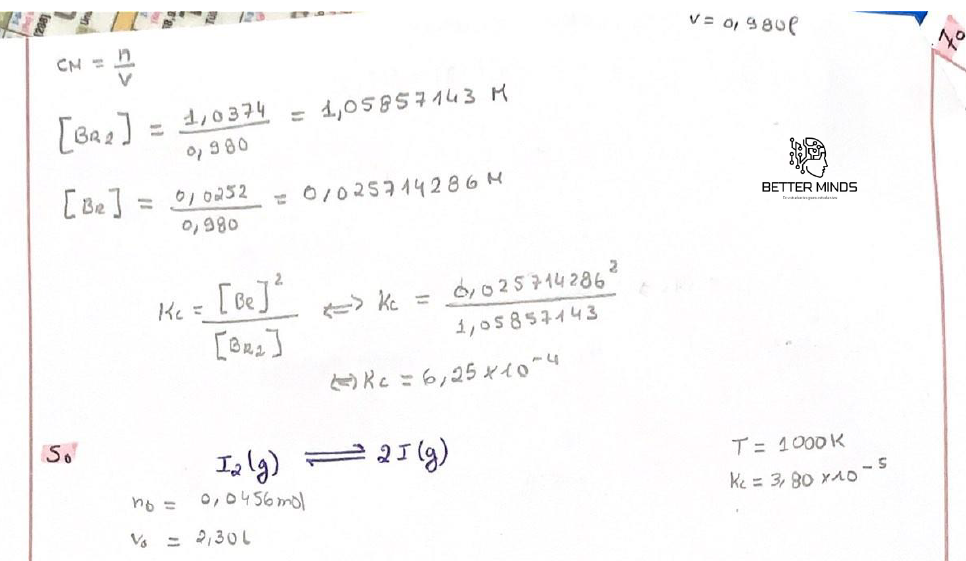 V = 0,980l
CM = n/V
[BR2] = 1,0374/0,980 = 1,05857143 M
[BR] = 0,0252/0,980 = 0,025714286 M
BETTER MINDS
Kc = [BR]²/[BR2] <=> Kc = 0,025714286²/1,05857143
<=> Kc = 6,25 x 10⁻⁴
5o
I2(g) ⇌ 2I(g)
T = 1000K
Kc = 3,80 x10⁻⁵
no = 0,0456mol
Vo = 2,30L